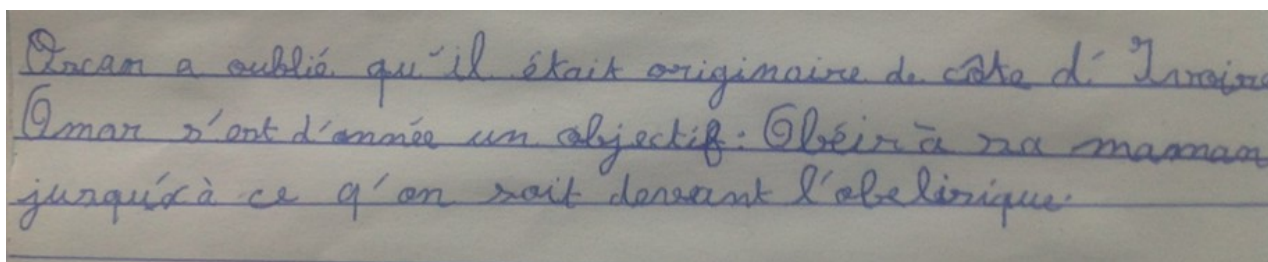 Orcan a oublié qu'il était originaire de côte d'Ivoire
Omar s'ent d'année un objectif : Obéir à sa maman
jusqu'à à ce q'on soit devant l'obelisique.